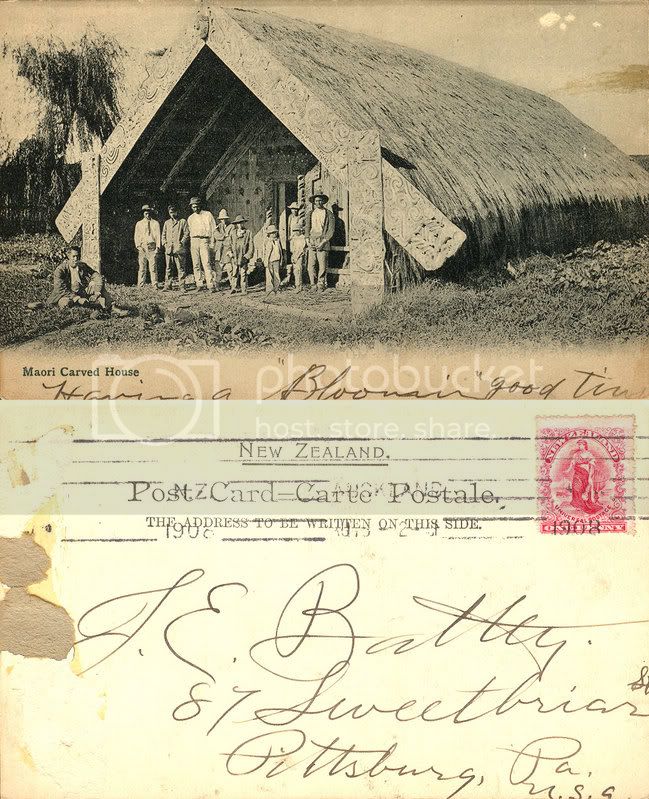 Maori Carved House
Having a "Bloomin" good tim
photobucket
host. store. share
NEW ZEALAND.
N.Z. AUCKLAND
Post Card—Carte Postale.
THE ADDRESS TO BE WRITTEN ON THIS SIDE.
1908 1908
NEW ZEALAND
ONE PENNY
87 Sweetbriar St
Pittsburg, Pa.
U.S.A.